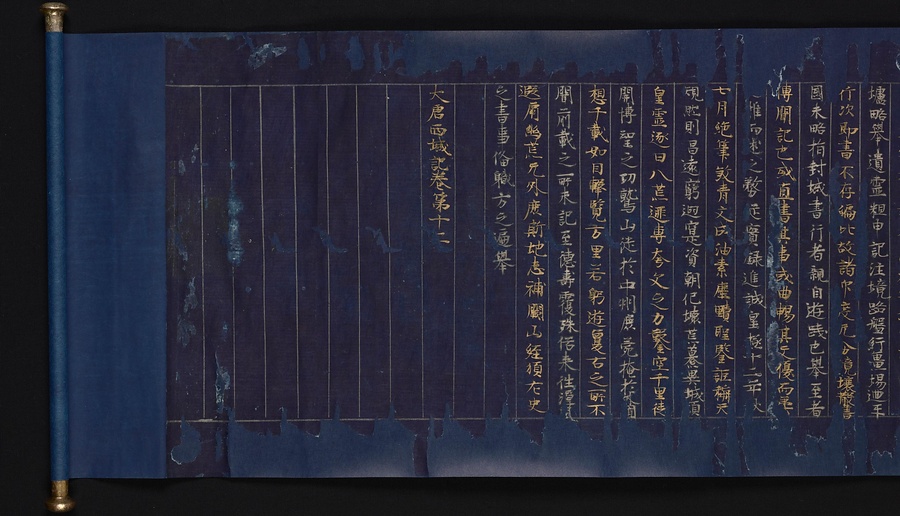 壚略舉遺靈粗申記注境路盤行疆場迴平
行次即書不存編比故諸印度无分境壤散書
國末略指封域書行者親自遊踐也舉至者
傳聞記也或直書其事或曲暢其文優而柔
推而述之務從實錄進誠皇極十二年秋
七月絕筆殺青文成油素塵黷聖鑒詎稱天
規然則昌遠窮迴寔資朝化壞荒纂異城須
皇靈逐日八荒遞專夸父之力鑿空千里徒
聞博望之功鷲山徙於中州鹿菀掩於自
想千載如目擊覽万里若躬遊敻古之所不
聞前載之所未記至德壽覆殊俗來往淳風
遐扇幽荒无外庶斯地志補闕山經頒左史
之書事俻職方之遍舉
大唐西域記卷第十二